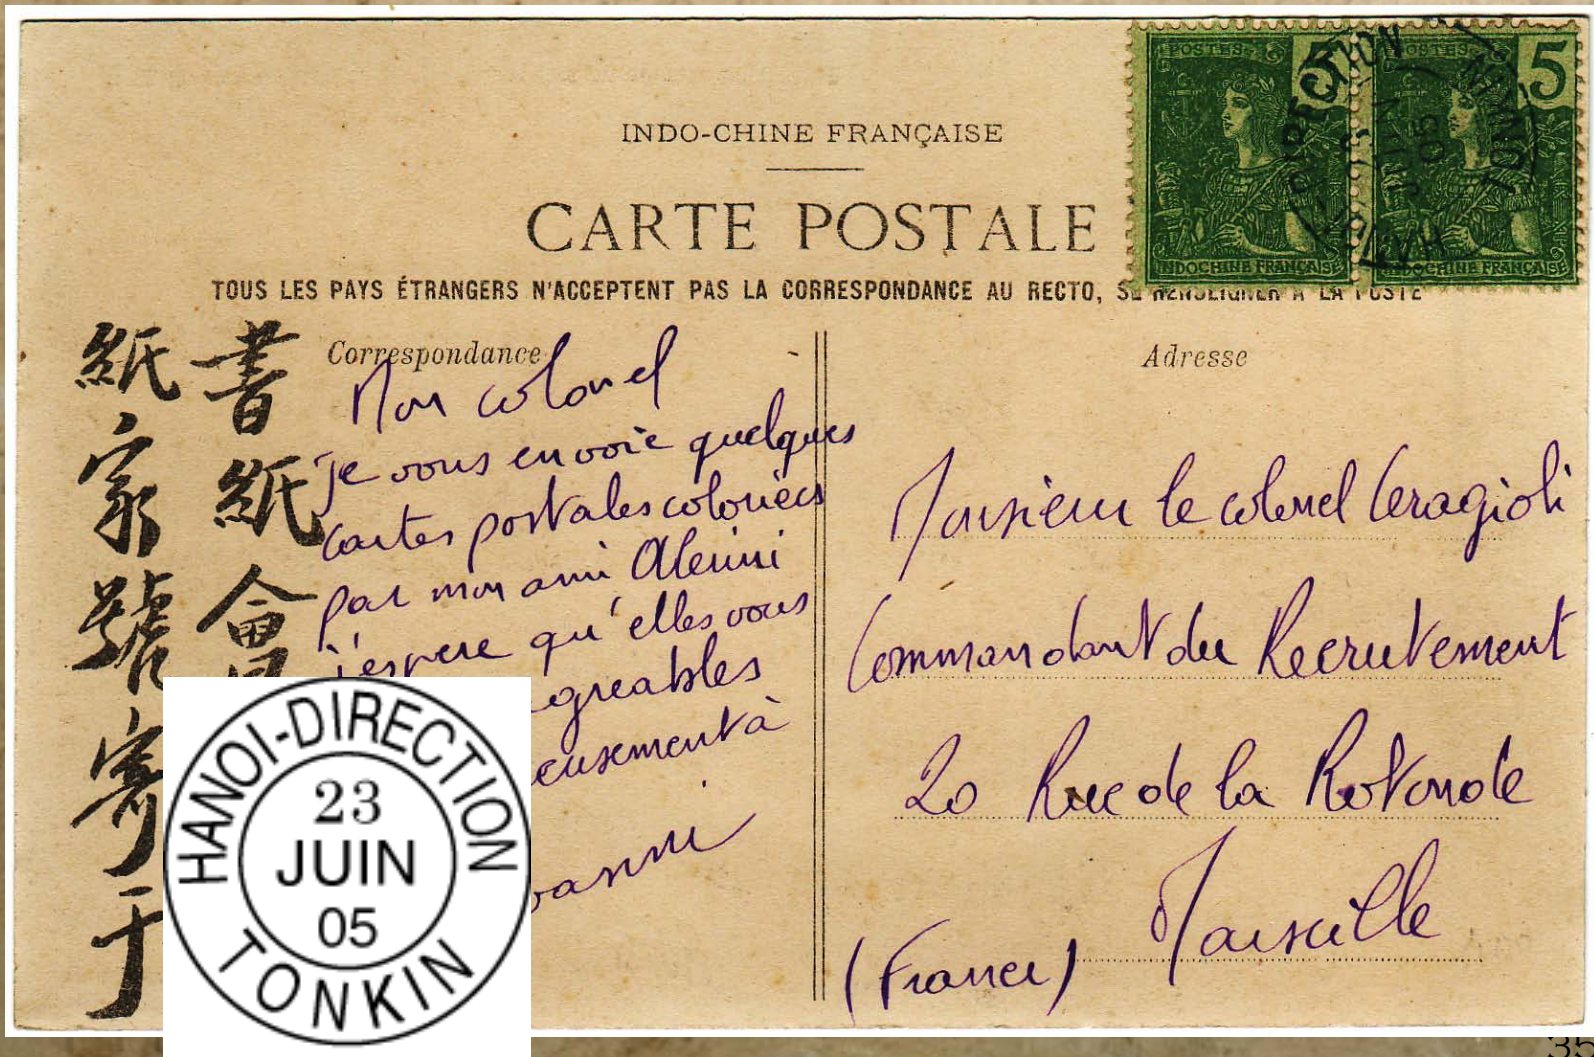 INDO-CHINE FRANÇAISE
CARTE POSTALE
TOUS LES PAYS ÉTRANGERS N'ACCEPTENT PAS LA CORRESPONDANCE AU RECTO, SE RENSEIGNER A LA POSTE
POSTES 5
INDOCHINE FRANÇAISE
POSTES 5
INDOCHINE FRANÇAISE
HANOI DIRECTION
JUIN
05
TONKIN
書紙會
紙家號寄于
Correspondance
Mon colonel
je vous envoie quelques
cartes postales coloriées
par mon ami Alerini
j'espere qu'elles vous
agreables
eusement à
Adresse
Monsieur le colonel Ceragioli
Commandant du Recrutement
20 Rue de la Rotonde
Marseille
(France)
HANOI-DIRECTION
23
JUIN
05
TONKIN
35